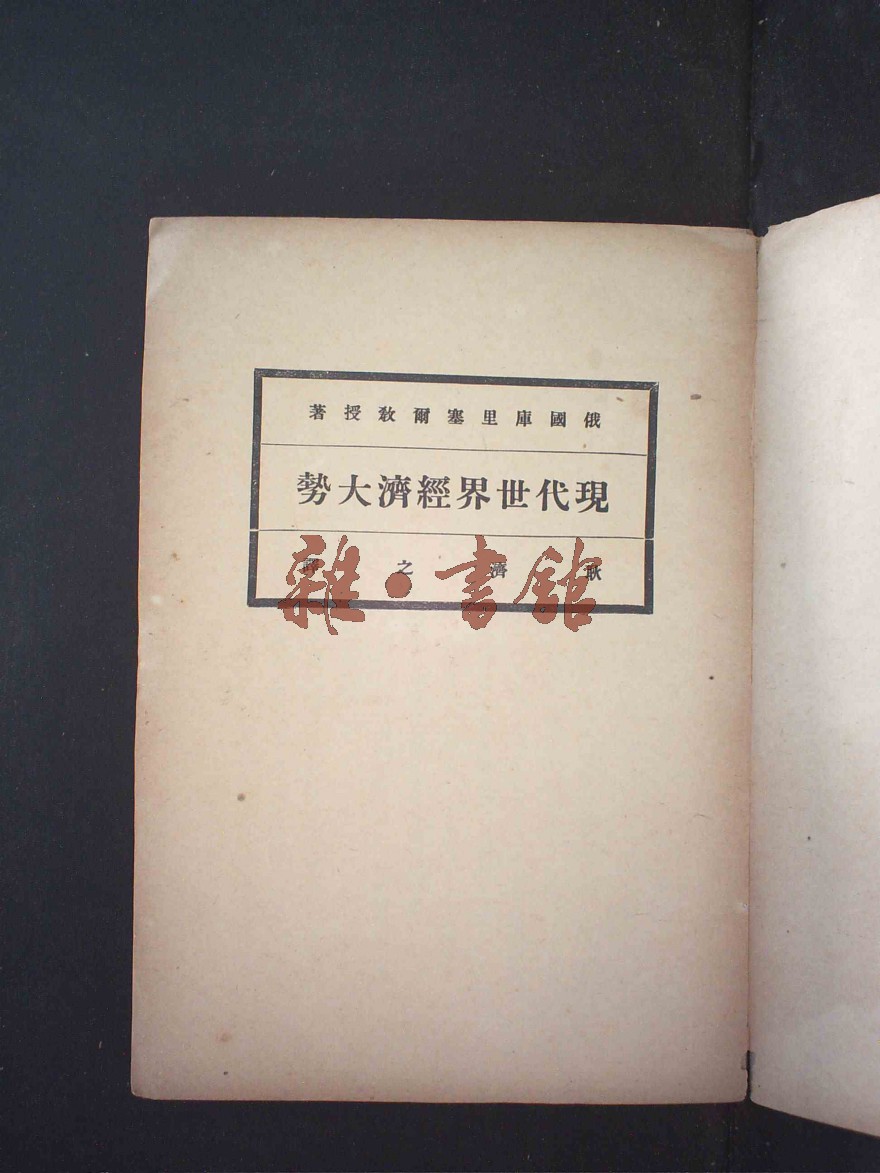 俄國庫里塞爾教授著
現代世界經濟大勢
耿濟之譯
雜·書館